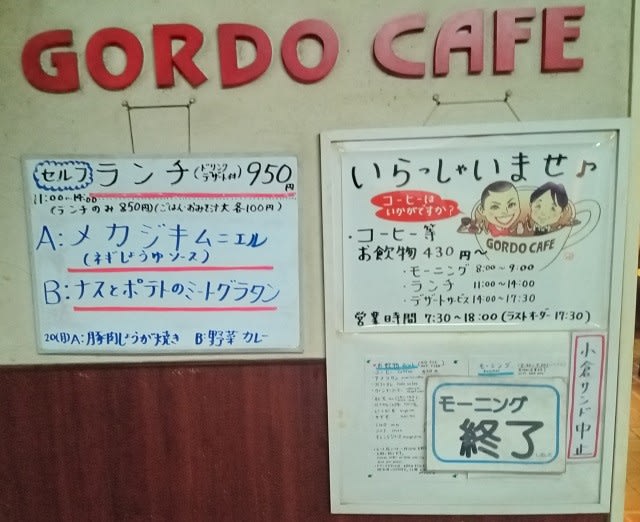 GORDO CAFE
セルフ ランチ (ドリンク デザート付) 950円
11:00~14:00
(ランチのみ 850円)(ごはん・おみそ汁大 各100円)
A:メカジキムニエル
(ネギじょうゆソース)
B:ナスとポテトのミートグラタン
20(日)A:豚肉しょうが焼き B:野菜カレー
いらっしゃいませ♪
コーヒーは
いかがですか?
GORDO CAFE
・コーヒー等
お飲物 430円~
・モーニング 8:00~9:00
・ランチ 11:00~14:00
・デザートサービス 14:00~17:30
営業時間 7:30~18:00(ラストオーダー17:30)
モーニング
小倉サンド中止
モーニング
終了